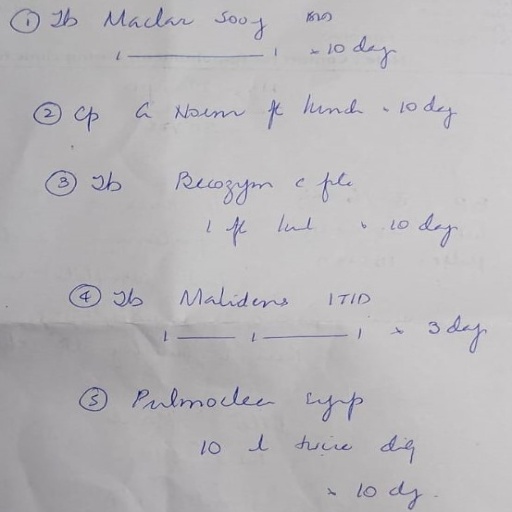 ① Tb Maclar 500g BD
1 ——— 1 × 10 day
② Cp G Norm ft lunch × 10 day
③ Tb Becozym c fte
1 ft lul × 10 day
④ Tb Malidens 1 TID
1 — 1 — 1 × 3 day
⑤ Pulmoclear syrp
10 l twice dly
× 10 dy.